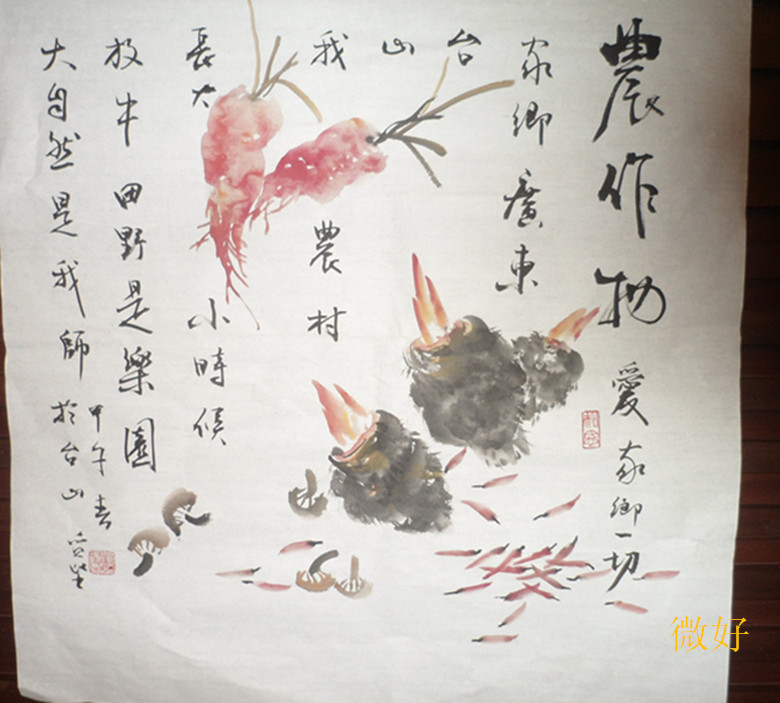 農作物
愛家鄉一切
家鄉廣東
台
山
我農村
長大小時候
放牛田野是樂園
大自然是我師
甲午春
於台山
微好